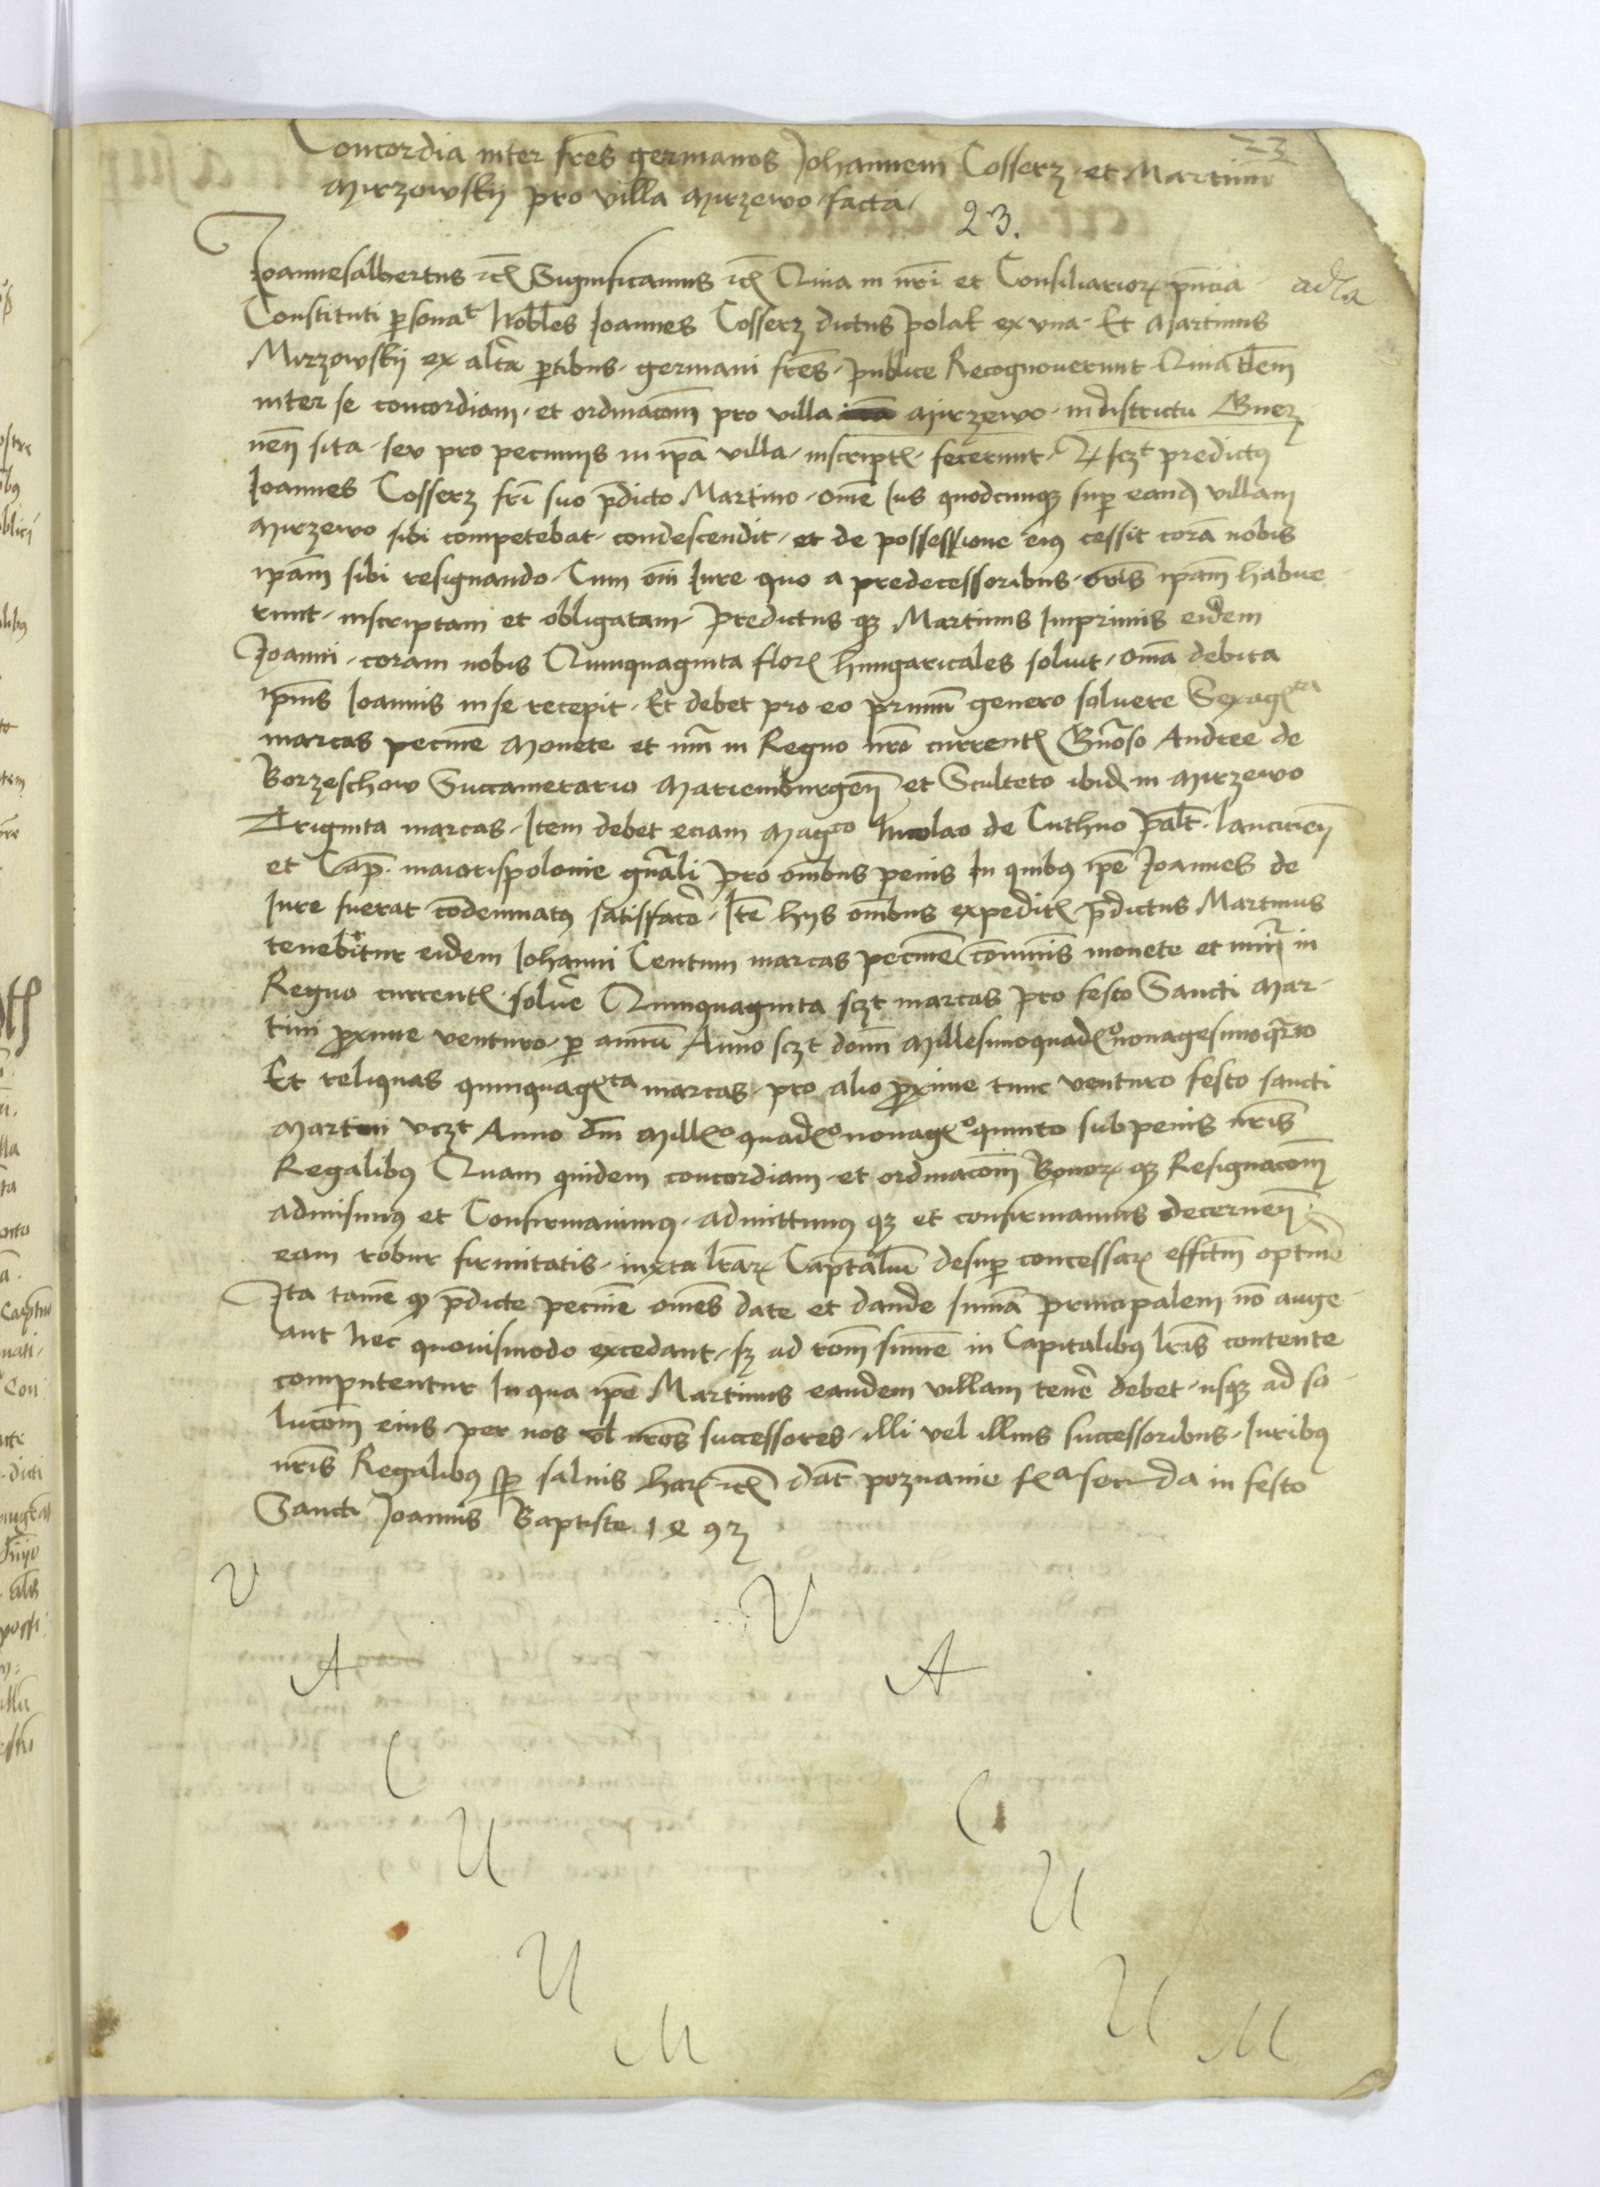 23
Concordia inter fres germanos Johannem Cosserz et Martinu
Mirzowskÿ pro villa Mirzewo facta
23.
Joannesalbertus etc Significamus etc Quia in nri et Consiliarior pñcia
Constituti personalt Nobiles Joannes Cosserz dictus polak ex vna Et Martinus
Mirzowskÿ ex altera ptibus germani fres publice Recognouerunt Quia tlem
inter se concordiam et ordinacom pro villa Mirzewo in districtu Gnerz
nen sita seu pro pecunijs in ipa villa inscript fecerunt scz predictus
Joannes Cosserz fri suo pdicto Martino ome Jus quodcunq sup eand villam
Mirzewo sibi competebat condescendit et de possessione eius cessit cora nobis
ipam sibi resignando Cum om Jure quo a predecessoribus nris ipam habue
runt inscriptam et obligatam Predictus q Martinus Imprimis eidem
Joanni coram nobis Quinquaginta flor hungaricales soluit oma debita
ipius Joannis in se recepit Et debet pro eo primum genero soluere Sexagta
marcas pecunie Monete et nui in Regno nro current Gnoso Andree de
Borzeschow Succamerario Mariemburgen et Sculteto ibid in Mirzewo
Triginta marcas Item debet eciam Magco Nicolao de Cuthno palt lancicien
et Cap maiorispolonie gnali pro omibus penis In quibus ipe Joannes de
Jure fuerat condemnatus satisfacere Ite hijs omibus expedit pdictus Martinus
tenebitur eidem Johanni Centum marcas pecunie comunis monete et nui in
Regno current soluere Quinquaginta sczt marcas pro festo Sancti Mar
tini proxime venturo p annu Anno sczt domi Millesimoquadronagesimoqrto
Et reliquas quinquagta marcas pro alio proxime tunc venturo festo sancti
Martini vczt Anno dm Millo quado nonago quinto sub penis nris
Regalibus Quam quidem concordiam et ordinacom Bonor q Resignacom
admisimus et Confirmauimus admittimus q et confirmamus decernen
eam robur firmitatis iuxta lrar Captaliu desup concessar effctm optinere
Ita tame q pdicte pecunie omes date et dande suma principalem no auge
ant nec quouismodo excedant sz ad rom sume in Capitalibus lris contente
computentur In qua ipe Martinus eandem villam tenere debet usq ad so
lucom eius per nos vl nros successores illi vel illius successoribus Juribus
nris Regalibus sp saluis har etc Dat poznanie fa secunda in festo
Sancti Joannis Baptiste 1493
V V
A A
C C
U U
U U
M M